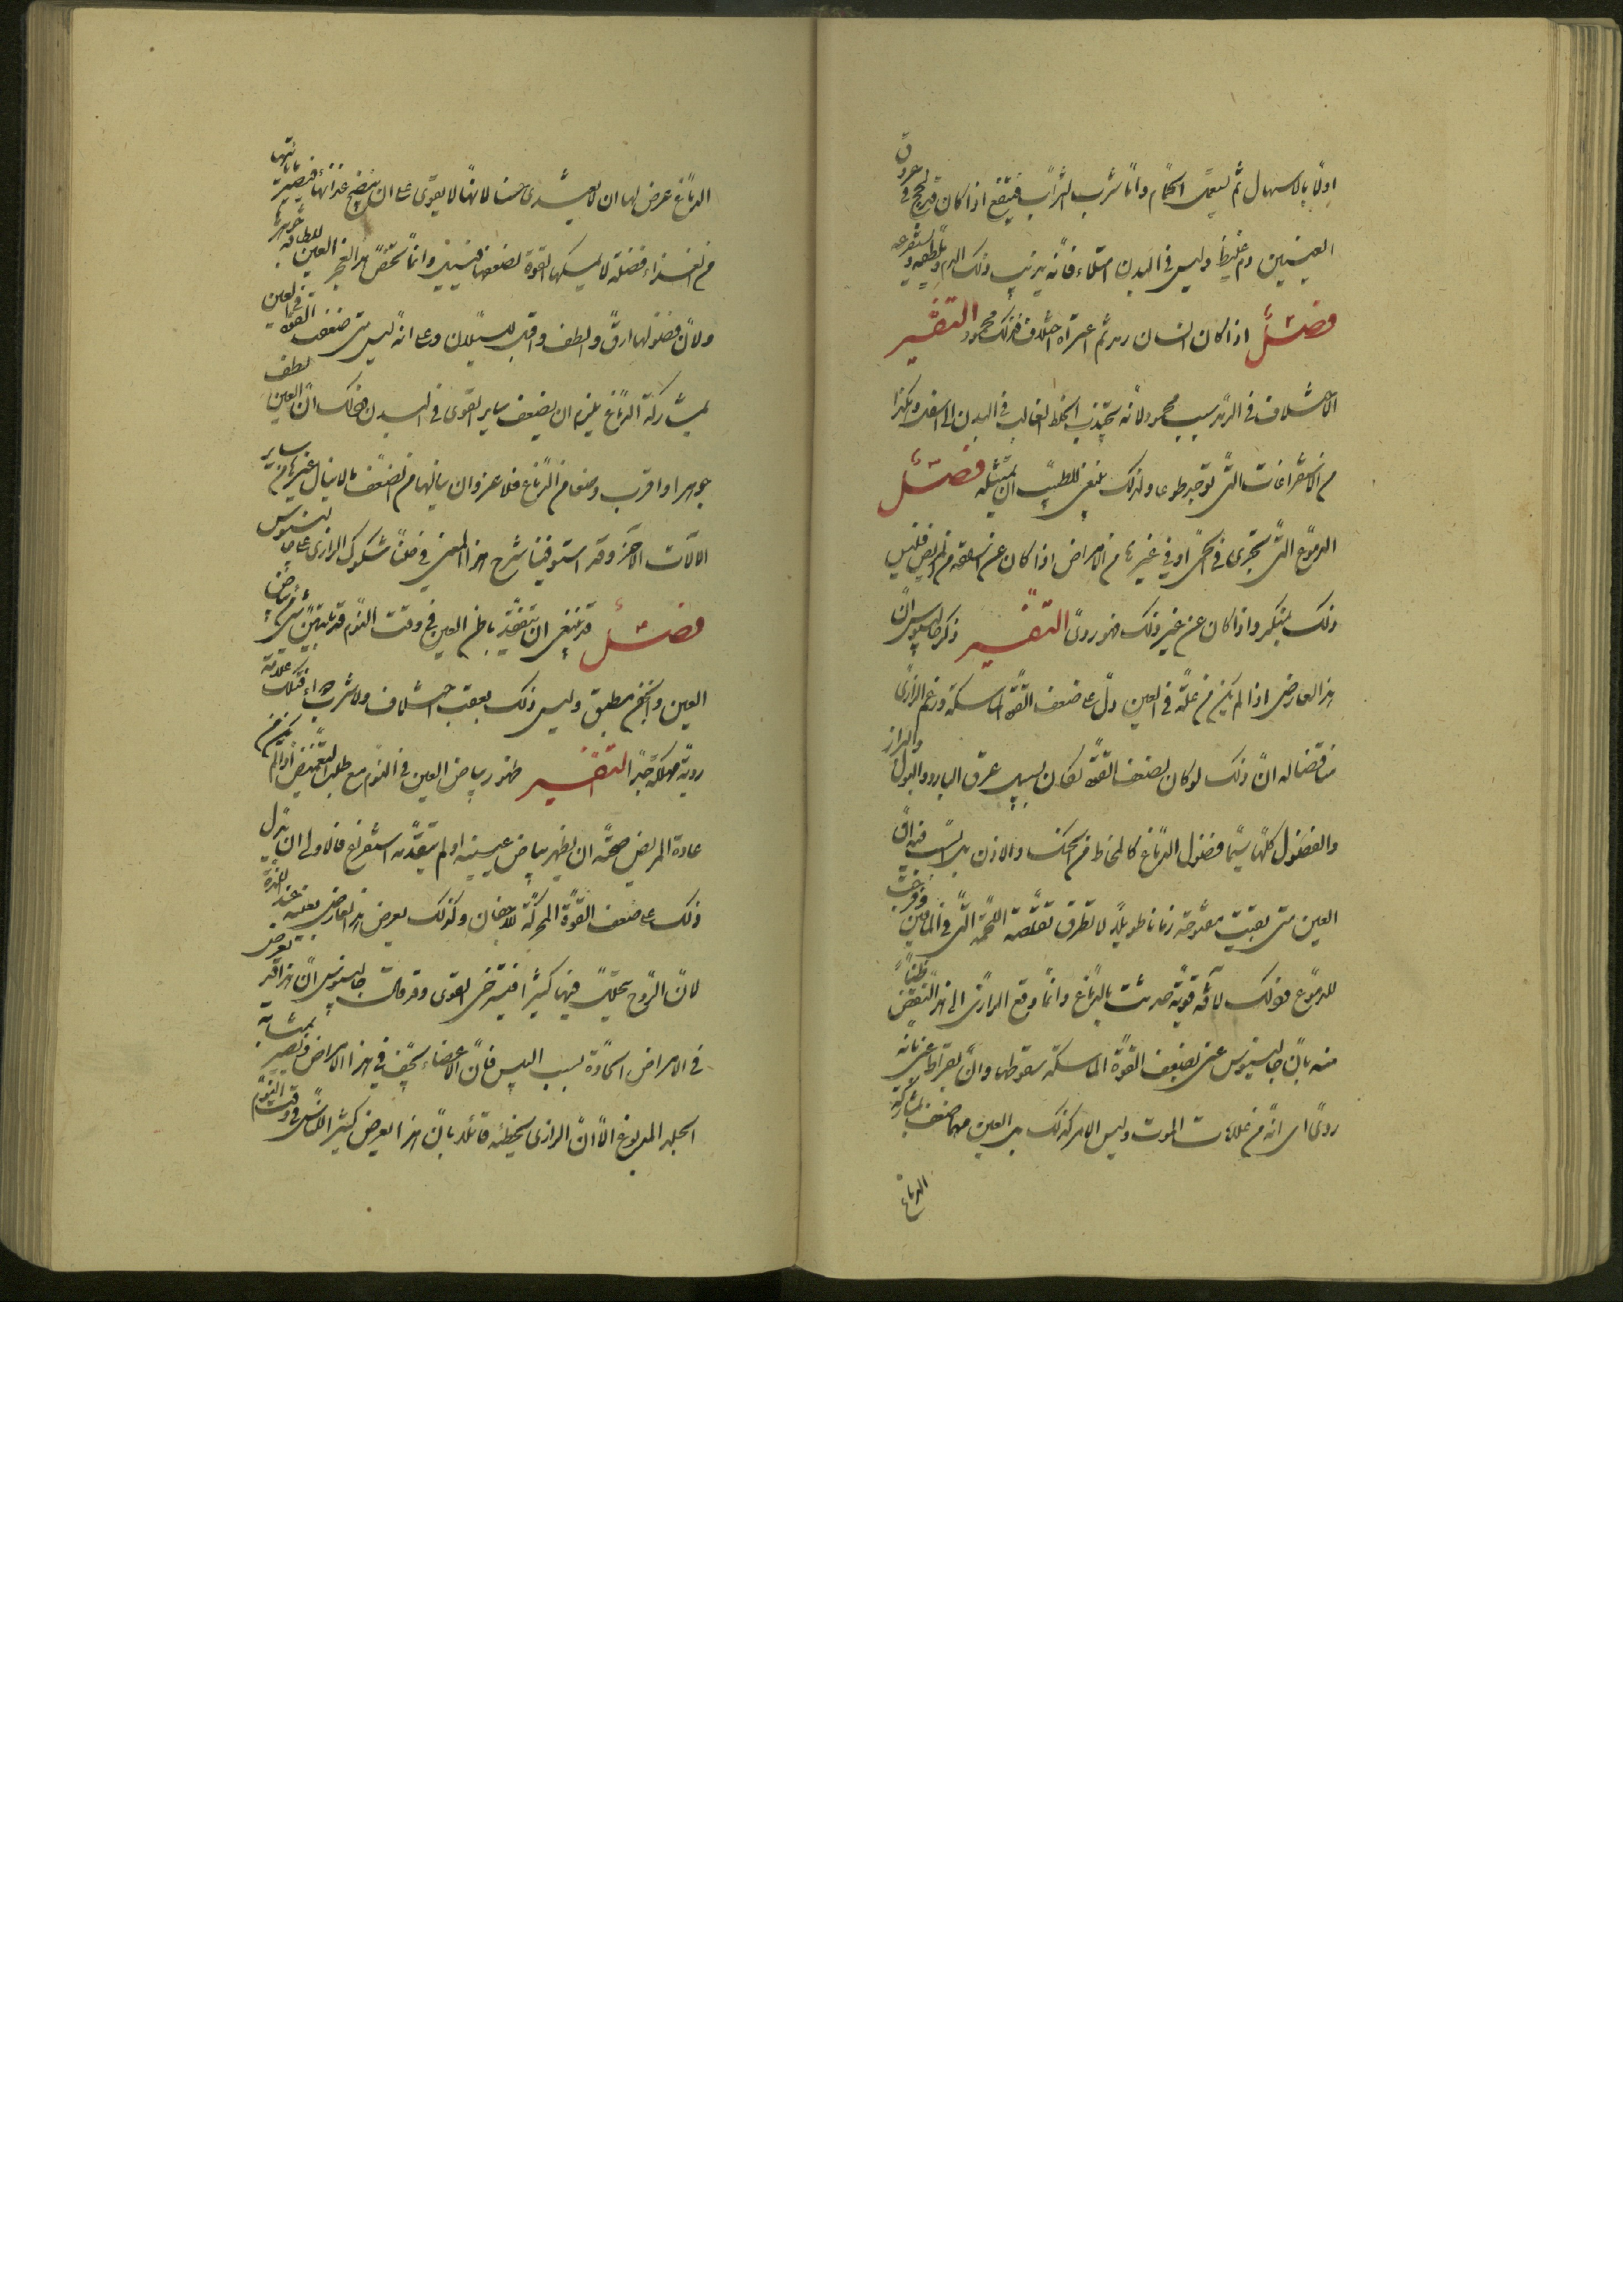 اولا بالاسهال ثم يستعمل الحمام واما شرب الشراب فينفع اذا كان قد لحج في عروق
العينين دم غليظ وليس في البدن امتلاء فانه يذيب ذلك الدم ويلطفه ويستفرغه
فصل اذا كان بانسان رمد ثم اعتراه اختلاف فذلك محمود التفسير
الاختلاف في الرمد سبب محمود لانه يجذب الخلط الغالب في البدن الى اسفل وهكذا
من الاستفراغات التي توجد طوعا ولذلك ينبغي للطبيب ان يمتثله فصل
الدموع التي تجري في الحمى او في غيرها من الامراض اذا كان عن ارادة من المريض فليس
ذلك بمنكر واذا كان عن غير ذلك فهو ردي التفسير ذكر جالينوس ان
هذا العارض اذا لم يكن من علة في العين دل على ضعف القوة الماسكة وزعم الرازي
مناقضا له ان ذلك لو كان لضعف القوة لكان يسيل عرق البارد والبول والبراز
والفضول كلها سيما فضول الدماغ كالمخاط من الحنك والاذن بل السبب فيه ان
العين متى بقيت مفتوحة زمانا طويلا لا تطرف تقلصت اللحمة التي في الماقين وفرخت
للدموع فذلك لآفة قوية حدثت بالدماغ وانما وقع الرازي الى هذا النقض ظنا
منه بان جالينوس عنى بضعف القوة الماسكة سقوطها وان بقراط عنى بانه
ردي اي انه من علامات الموت وليس الامر كذلك بل العين مهما ضعفت بمشاركة
الدماغ
الدماغ عرض لها ان لانها لا يقوى على ان ينضج غذائها فتصير مائيتها
من الغذاء فضلة لا يمسكها القوة لضعفها فيسيل وانما تخص هذا العين للطافة جوهرها
ولان فضولها ارق والطف واقبل للسيلان وعلى انه ليس متى ضعف القوة في العين
بمشاركة الدماغ يلزم ان يضعف ساير القوى في البدن وذلك ان العين لطف
جوهرا واقرب وضعا من الدماغ فلا غرو ان ينالها من الضعف ما لا ينال غيرها من ساير
الآلات الاخر وقد استوفينا شرح هذا المعنى في حلنا شكوك الرازي على جالينوس
فصل قد ينبغي ان يتفقد باطن العين في وقت النوم فان تبين شيء من بياض
العين والجفن مطبق وليس ذلك بعقب اختلاف ولا شرب دواء فتلك علامة
ردية مهلكة جدا التفسير ظهور بياض العين في النوم مع طلب التغميض اذا لم يكن من
عادة المريض في صحته ان يظهر بياض عينيه او لم يتقدمه استفراغ فالاولى ان يدل
ذلك على ضعف القوة المحركة للاجفان وكذلك يعرض هذا العارض بعينه عند
لان الروح يتحلل فيها كثيرا فيسترخي القوى وقد قال جالينوس ان هذا قد يعرض
في الامراض الحادة بسبب اليبس فان الاعضاء تجف في هذه الامراض وتصير بمثابة
الجلد المدبوغ الا ان الرازي يخطئه قائلا بان هذا يعرض كثيرا للناس في وقت النوم